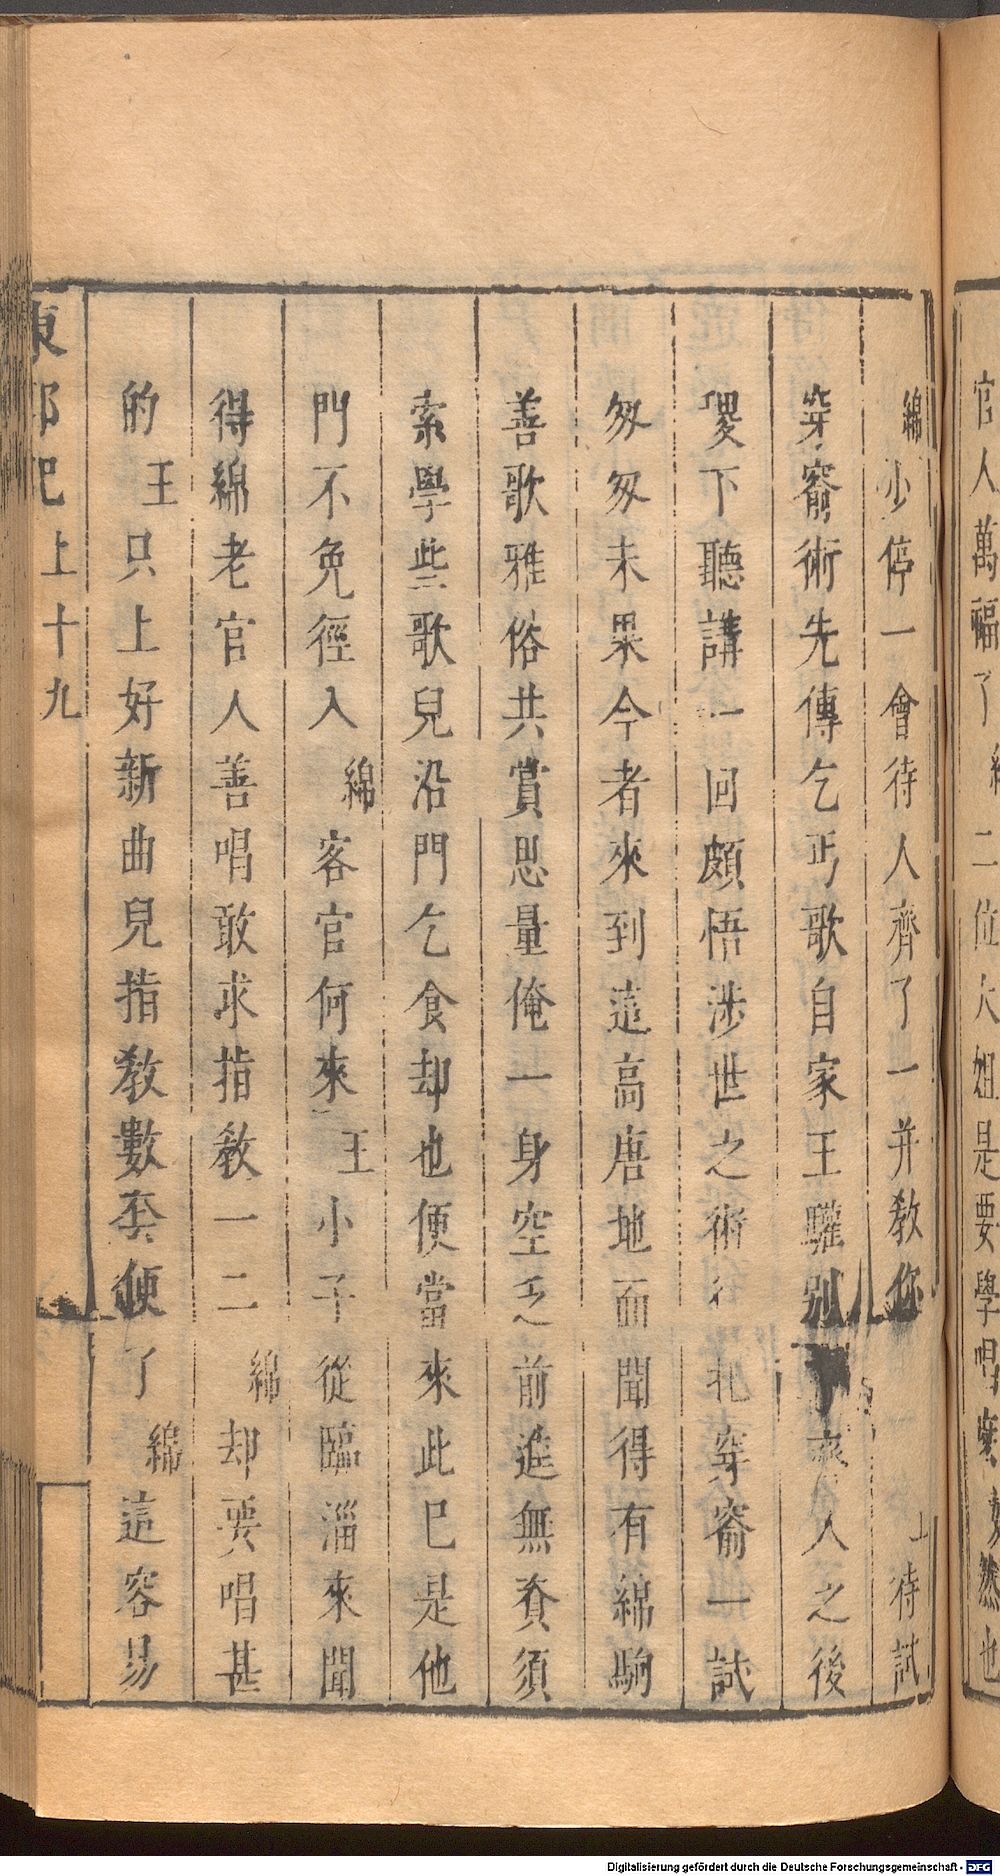 官人萬福了 二位大姐是要學唱麽 然也
綿 少停一會待人齊了一并教你 上 待試
穿窬術先傳乞丐歌自家王驩別了齊人之後
稷下聽講一回頗悟涉世之術 穿窬一試
匆匆未果今者來到這高唐地面聞得有綿駒
善歌雅俗共賞思量俺一身空乏前進無資須
索學些歌兒沿門乞食却也便當來此已是他
門不免徑入 綿 客官何來 王 小子從臨淄來聞
得綿老官人善唱敢求指教一二 綿 却要唱甚
的 王 只上好新曲兒指教數套便了 綿 這容易
東郭記 上 十九
Digitalisierung gefördert durch die Deutsche Forschungsgemeinschaft - DFG